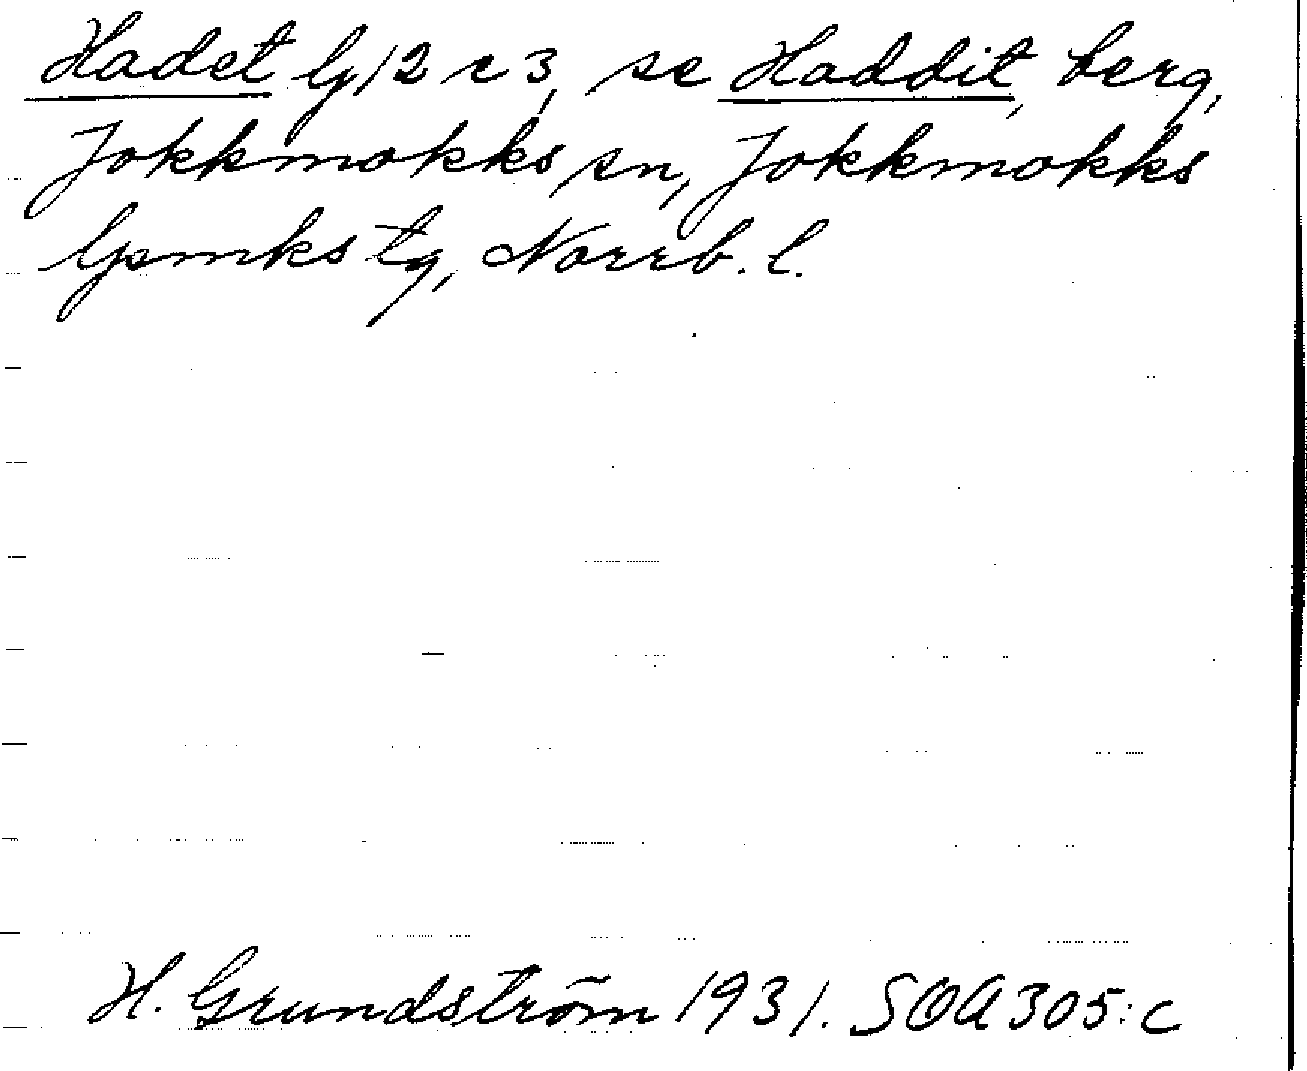 Hadet G12 c 3, se Haddit, berg,
Jokkmokks sn, Jokkmokks
lpmks tg, Norrb. l.
H. Grundström 1931. SOA 305:c